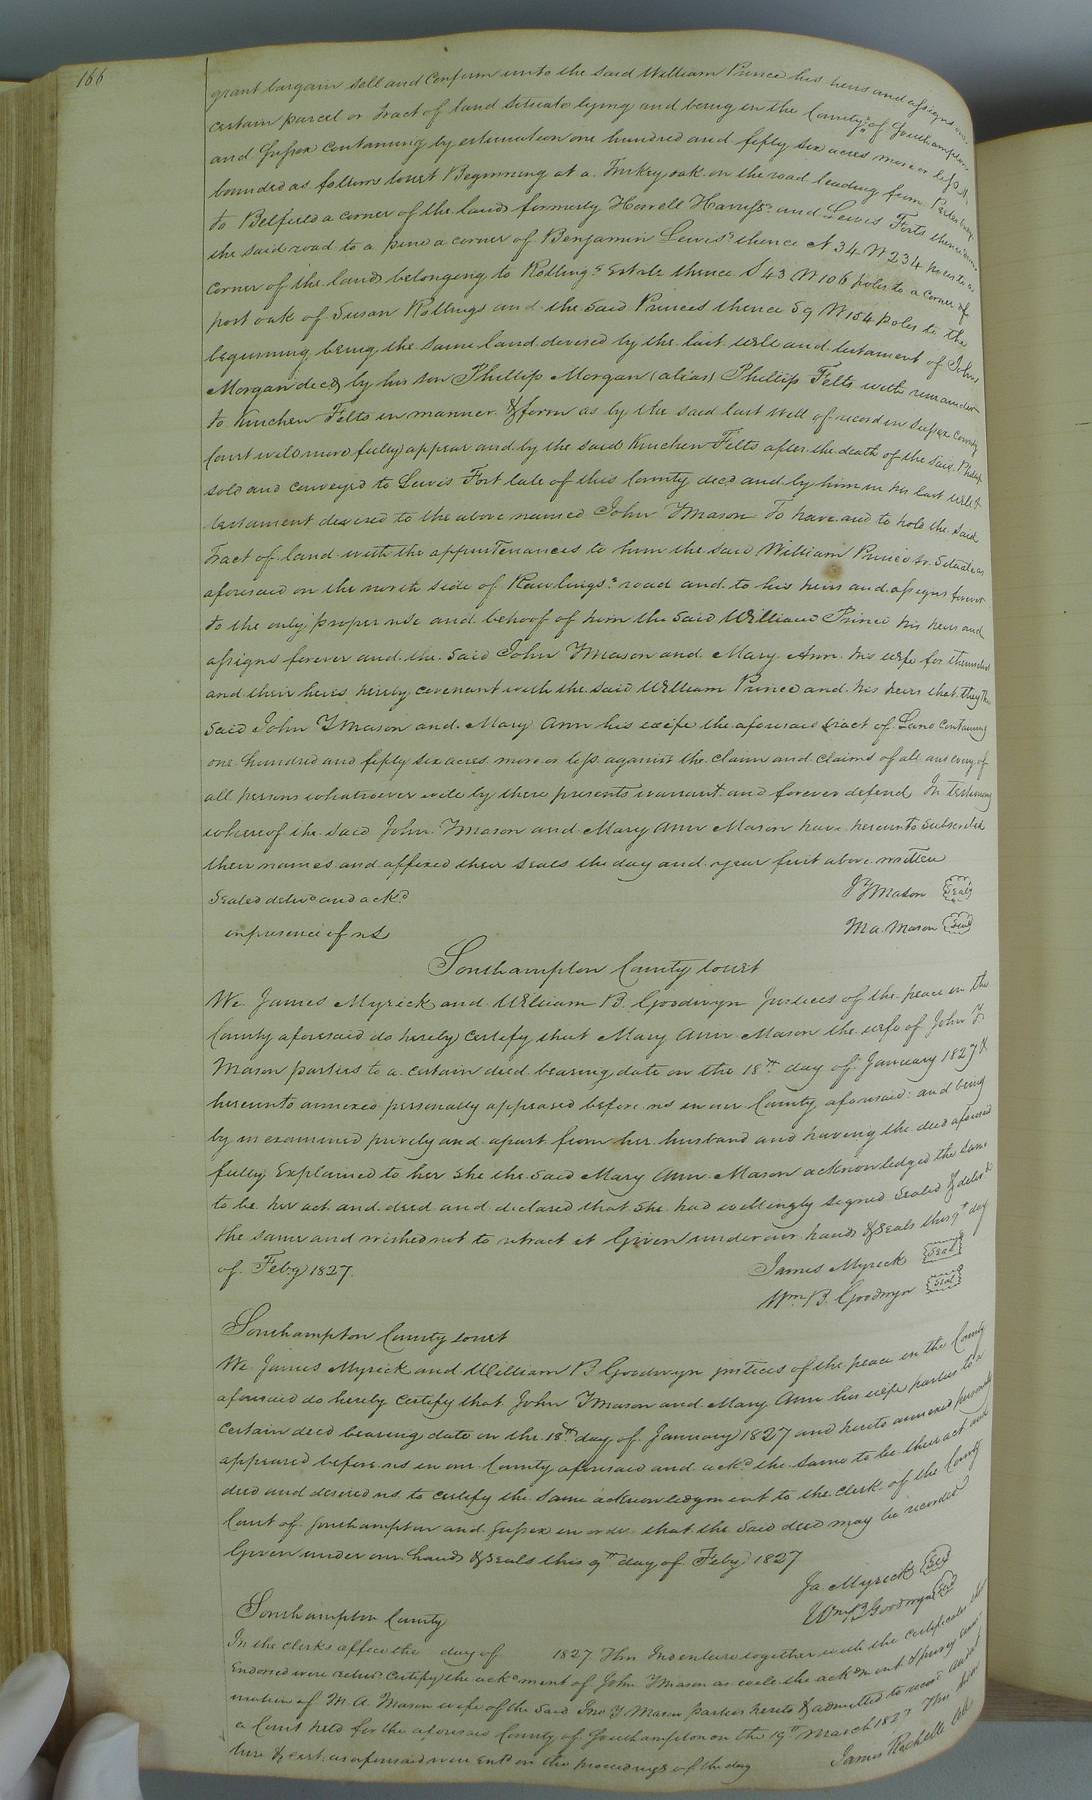 166
grant bargain sell and Conferm unto the said William Prince his heirs and assigns one
certain parcel or Tract of land situate lying and being in the County's of Southampton
and Sussex containing by estimation one hundred and fifty six acres more or less &
bounded as follows towit Beginning at a Turkey oak on the road leading from
to Belfield a corner of the lands formerly Howell Harriss's and Lewis Forts thence down
the said road to a pine a corner of Benjamin Lewis's thence N 34 W 234 poles to a
corner of the lands belonging to Rollings Estate thence S 43 W 106 poles to a corner of
post oak of Susan Rollings and the said Princes thence S 9 W 154 poles to the
beginning being the same land devised by the last will and testament of John
Morgan decd by his son Phillip Morgan (alias) Phillip Felts with remainder
to Kinchen Felts in manner & form as by the said last will of record in Sussex County
Court will more fully appear and by the said Kinchen Felts after the death of the said Phillip
sold and conveyed to Lewis Fort late of this County decd and by him in his last will &
testament devised to the above named John Y Mason To have and to hold the said
Tract of land with the appurtenances to him the said William Prince Sr. Situate as
aforesaid on the north side of Rawlings's road and to his heirs and assigns forever
to the only proper use and behoof of him the said William Prince his heirs and
assigns forever and the said John Y Mason and Mary Ann his wife for themselves
and their heirs hereby covenant with the said William Prince and his heirs that they the
said John Y Mason and Mary Ann his wife the aforesaid tract of Land containing
one hundred and fifty six acres more or less against the claim and claims of all and every of
all persons whatsoever will by these presents warrant and forever defend In testimony
whereof the said John Y Mason and Mary Ann Mason have hereunto subscribed
their names and affixed their seals the day and year first above written
Sealed delivd and ackd
in presence of us
J Y Mason Seal
M a. Mason Seal
Southampton County Court
We James Myrick and William B. Goodwyn Justices of the peace in the
County aforesaid do hereby certify that Mary Ann Mason the wife of John Y.
Mason parties to a certain deed bearing date on the 18th day of January 1827 &
hereunto annexed personally appeared before us in our County aforesaid and being
by us examined privily and apart from her husband and having the deed aforesaid
fully Explained to her she the said Mary Ann Mason acknowledged the same
to be her act and deed and declared that she had willingly signed sealed & delivd
the same and wished not to retract it Given under our hands & seals this 9th day
of Feby 1827.
James Myrick Seal
Wm B. Goodwyn Seal
Southampton County Court
We James Myrick and William B Goodwyn justices of the peace in the County
aforesaid do hereby certify that John Y Mason and Mary Ann his wife parties to a
certain deed bearing date on the 18th day of January 1827 and hereto annexed personally
appeared before us in our County aforesaid and ackd the same to be their act and
deed and desired us to certify the same acknowledgment to the clerk of the County
Court of Southampton and Sussex in order that the said deed may be recorded
Given under our hands & seals this 9th day of Feby 1827
Ja. Myrick Seal
Wm B Goodwyn Seal
Southampton County
In the clerks office the day of 1827 This Indenture together with the certificates
Endorsed were certify the ackdment of John Y Mason as well the ackdment & privy
of M. A. Mason wife of the said Jno Y Mason parties hereto & admitted to record and at
a Court held for the aforesaid County of Southampton on the 19th March 1827 This
ture & cert. as aforesaid were entd on the proceedings of the day
James Rochelle